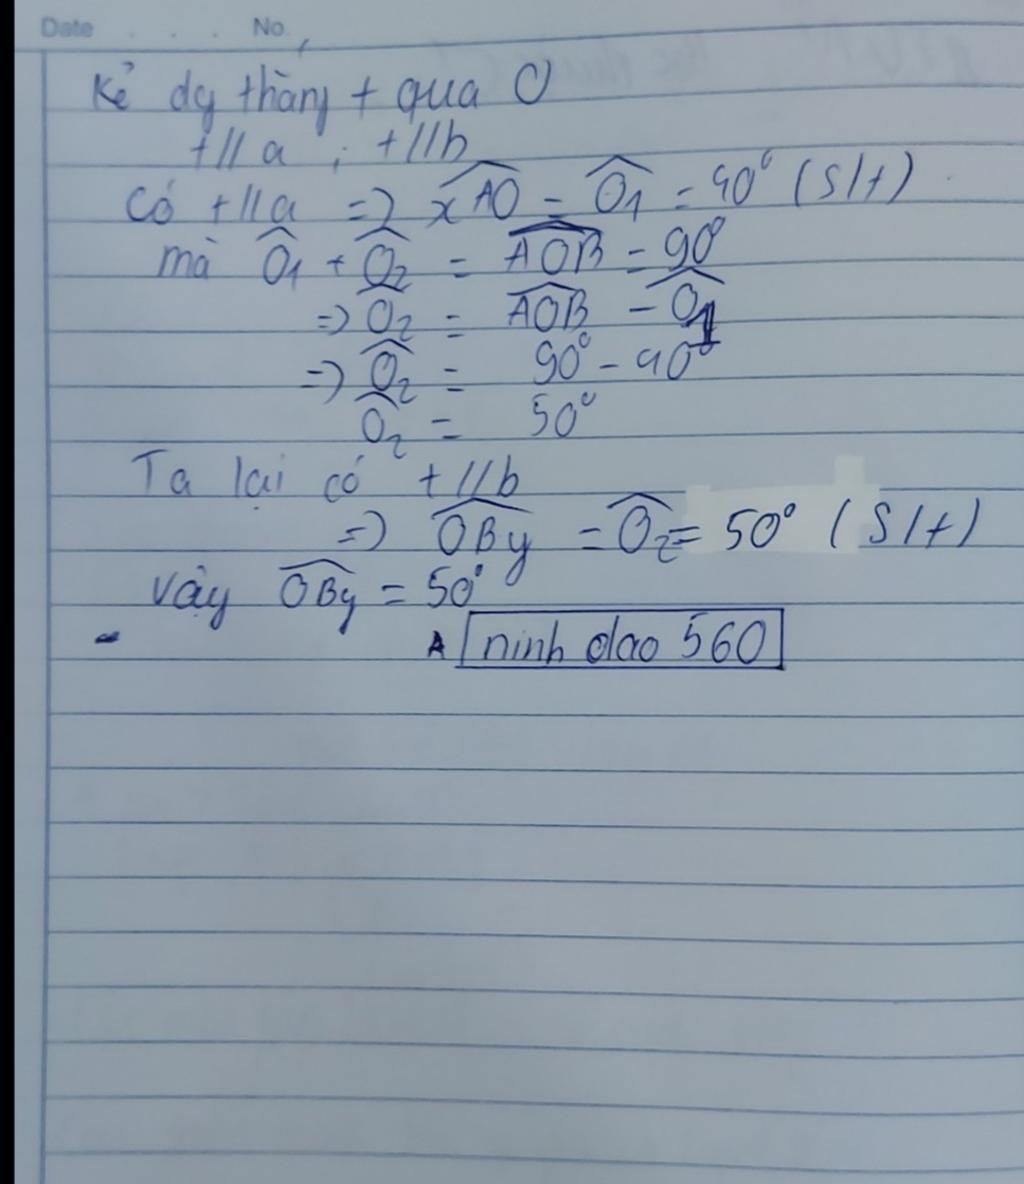 Date . . . . No.
Kẻ đg thẳng t qua O
t // a ; t // b
Có t // a => xAO = O1 = 40° (slt)
mà O1 + O2 = AOB = 90°
=> O2 = AOB - O1
=> O2 = 90° - 40°
O2 = 50°
Ta lại có t // b
=> OBy = O2 = 50° (slt)
Vậy OBy = 50°
ninh dao 560